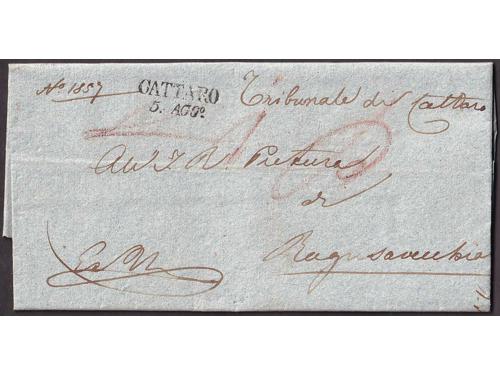 No 1857
CATTARO
5. AGGO
Tribunale di Cattaro
All' I. R. Pretura
di
Ragusavecchia